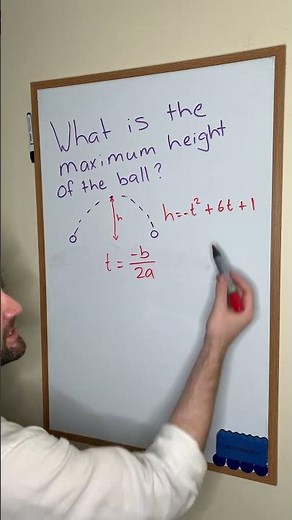 What is the
maximum height
of the ball?
h
h=-t² + 6t + 1
t = -b/2a